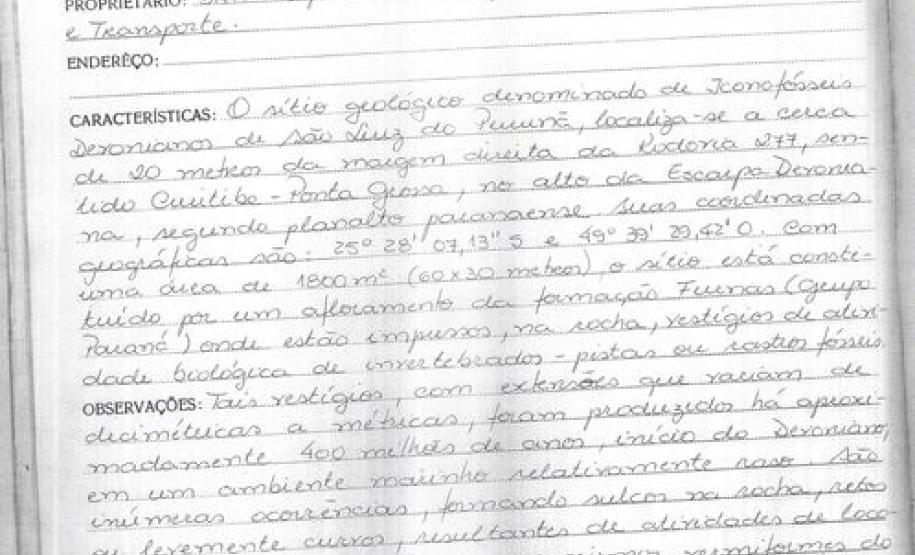 PROPRIETÁRIO:
e Transporte.
ENDERÊÇO:
CARACTERÍSTICAS: O sítio geológico denominado de Iconofósseis
Devonianos de São Luiz do Purunã, localiza-se a cerca
de 20 metros da margem direita da Rodovia 277, sen-
tido Curitiba - Ponta Grossa, no alto da Escarpa Devonia-
na, segundo planalto paranaense suas coordenadas
geográficas são: 25° 28' 07,13" S e 49° 39' 29,42' O. Com
uma área de 1800m² (60x30 metros), o sítio está consti-
tuído por um afloramento da formação Furnas (Grupo
Paraná) onde estão impressos, na rocha, vestígios de ativi-
dade biológica de invertebrados - pistas ou rastros fósseis.
OBSERVAÇÕES: Tais vestígios, com extensões que variam de
decimétricas a métricas, foram produzidos há aproxi-
madamente 400 milhões de anos, início do Devoniano,
em um ambiente marinho relativamente raso. São
inúmeras ocorrências, formando sulcos na rocha, retos
ou levemente curvos, resultantes de atividades de loco-
vermiformes do